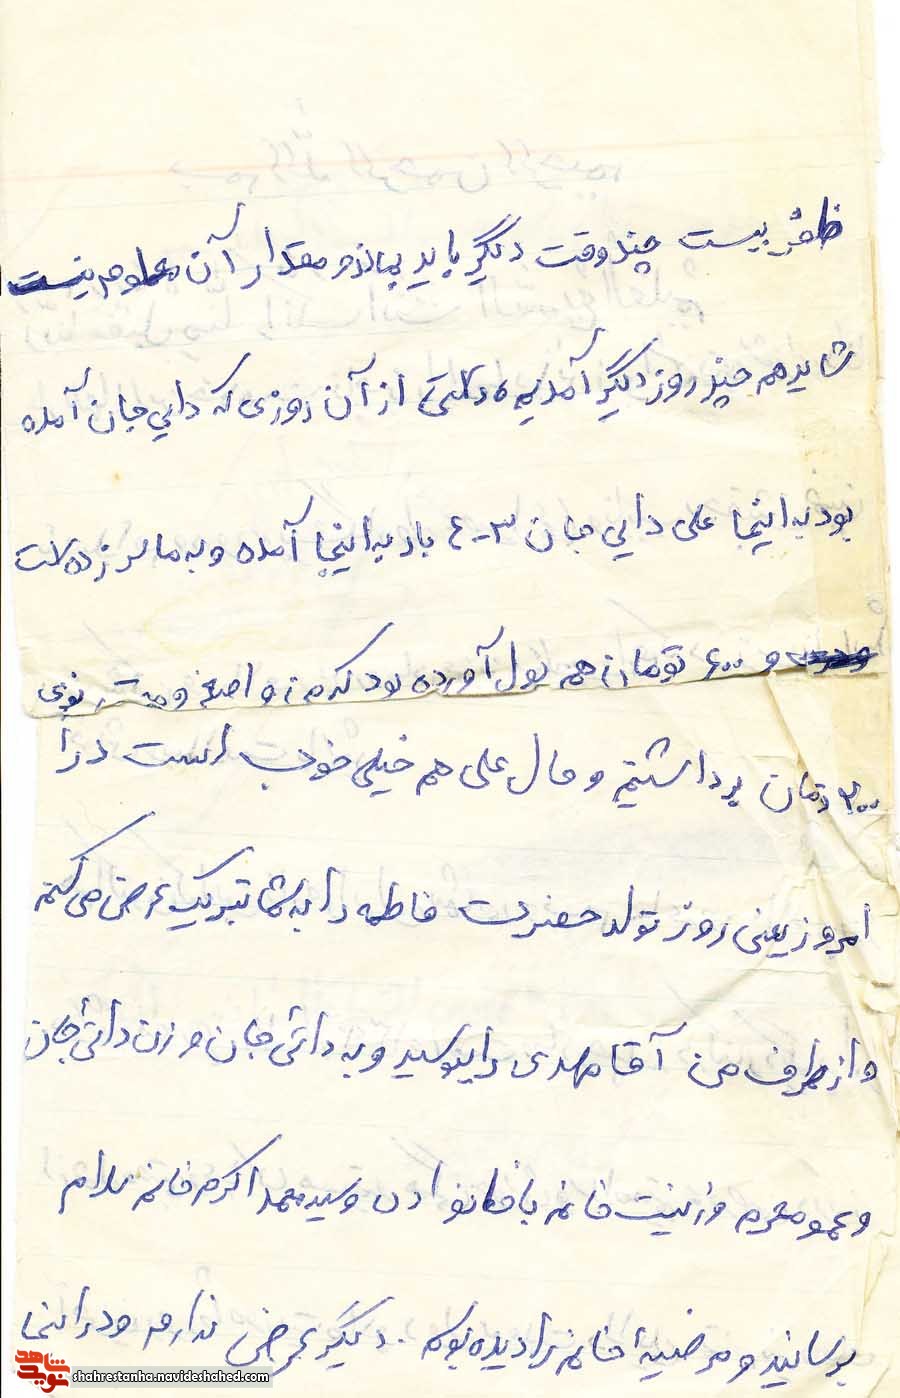 چند وقت دیگر باید بمانم و مقدار آن معلوم نیست
شاید هم چند روز دیگر آمدیم از آن روزی که دایي جان آمده
بود به اینجا علی دایي جان ٣-٤ بار به اینجا آمده و به ما سر زده است
و ۶۰۰ تومان هم پول آورده بود که من و اصغر و
۲۰۰ تمان برداشتیم و حال علی هم خیلی خوب است در
امروز یعنی روز تولد حضرت فاطمه را به شما تبریک عرض می کنم
و از طرف من آقا مهدی را ببوسید و به دائی جان و زن دائی جان
و عمو محرم و زینت خانم با خانواده و سید محمد اکرم خانم سلام
برسانید و مرضیه خانم را دیده بوسم . دیگر عرضی ندارم و در اینجا
شاهد
نوید
shahrestanha.navideshahed.com